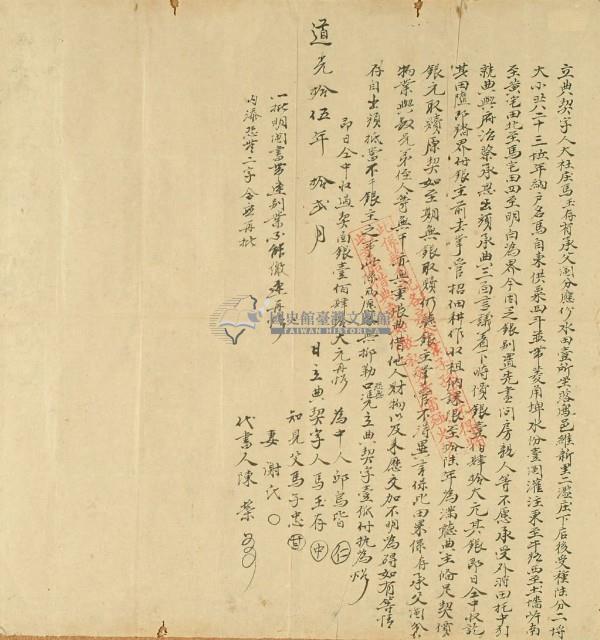 立典契字人大社庄馬玉存有承父鬮分應份水田壹所坐落彰邑維新里二濫庄下后後受種陸分一埒
大小共八十三坵年納戶名馬自東供粟四斗並帶菱角埤水份壹鬮灌注東至車路西至土墻岸南
至黃宅田北至馬宅田四至明白為界今因乏銀別置先盡問房親人等不愿承受外將田托中引
就典與府治蔡承恩出頭承典三面言議着下時價銀壹佰肆拾大元其銀即日仝中收訖
其田隨即踏界付銀主前去掌管招佃耕作收租納課限至拾陸年為滿聽典主備足契價
銀元取贖原契如至期無銀取贖仍聽銀主掌管不得異言保此田果係存承父鬮分
物業與叔兄弟侄人等無干亦無重張典借他人財物以及來歷交加不明為碍如有等情
存自出頭抵當不干銀主之事此係兩愿各無抑勒口恐無憑立典契字壹紙付執為炤
即日仝中收過契面銀壹佰肆拾大元再炤
為中人邱烏皆
道光拾伍年 拾弍月 日立典契字人馬玉存
知見父馬子忠
妻謝氏
代書人陳榮
一批明鬮書帶連別業不能繳柬再炤
內添恐無二字仝立再批
國史館臺灣文獻館
TAIWAN HISTORICA